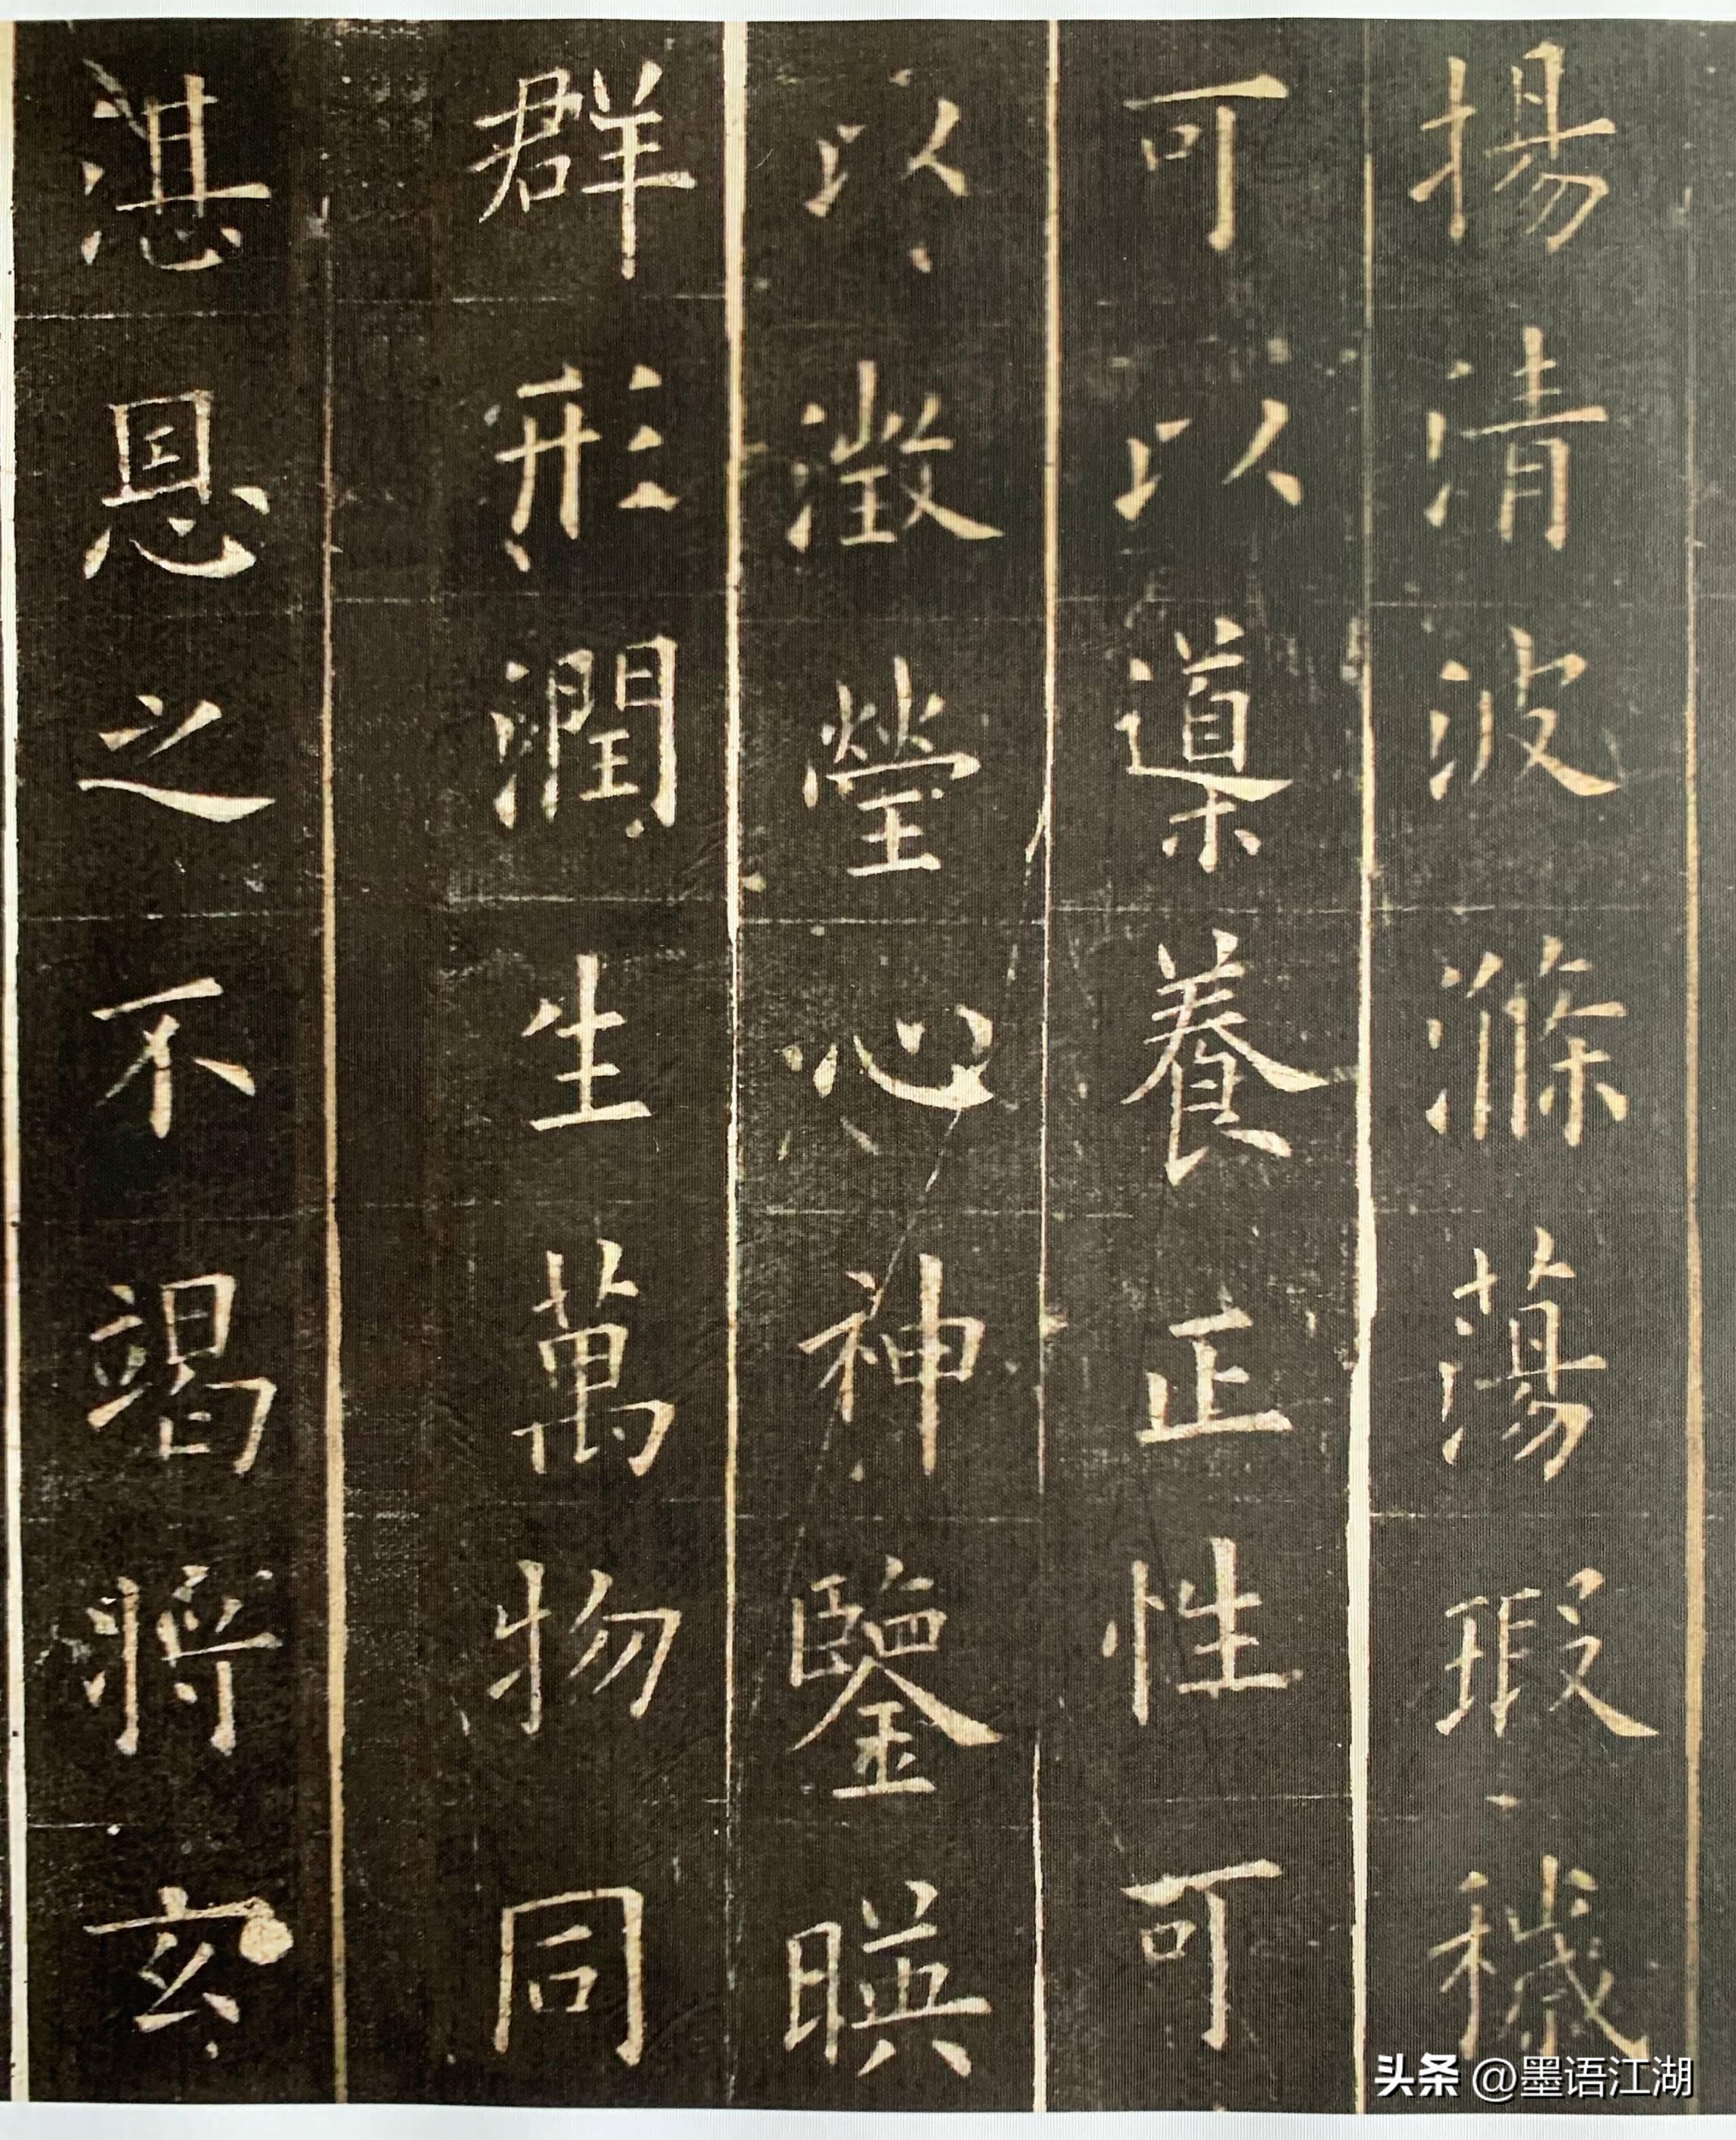 揚清波滌蕩瑕穢
可以導養正性可
以澂瑩心神鑒暎
群形潤生萬物同
湛恩之不竭將玄
头条 @墨语江湖